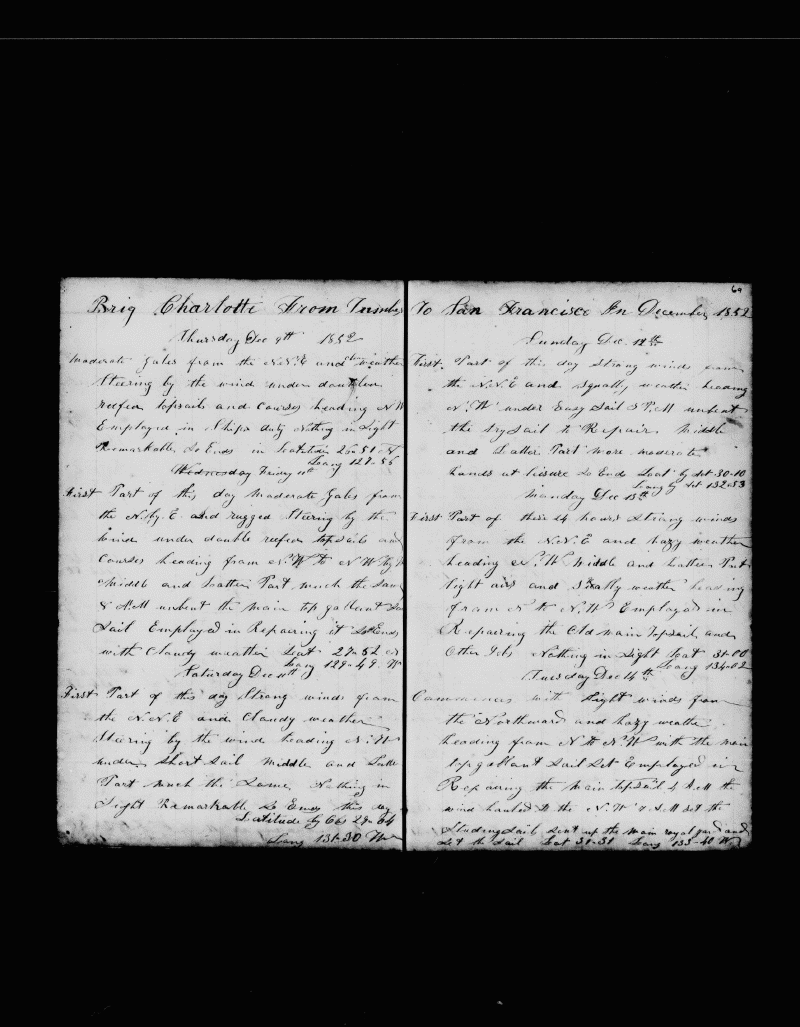 Brig Charlotte From Tumbes
Thursday Dec 9th 1852
Moderate Gales from the N.N.E and weather
Steering by the wind under double
reefed topsails and Courses heading N W
Employed in Ships duty Nothing in Sight
Remarkable So Ends in Latitude 26=51 N
Long 127=56
Wednesday Friday 10th
First Part of this day Moderate Gales from
the N.by.E and rugged Steering by the
wind under double reefed topsails and
Courses heading from N.W to N W by
Middle and Latter Part much the Same
8 A.M unbent the Main top gallant
Sail Employed in Repairing it So Ends
with Cloudy weather Lat 27=52 N
Long 129=49 W
Saturday Dec 11th
First Part of this day Strong winds from
the N.N.E and Cloudy weather
Steering by the wind heading N.W
under Short Sail Middle and Latter
Part much the Same, Nothing in
Sight Remarkable So Ends this day
Latitude by Obs 29=04
Long 131-30 W
69
To San Francisco In December 1852
Sunday Dec. 12th
First Part of this day Strong winds from
the N.N.E and Squally weather heading
N.W under Easy Sail 3 P.M unbent
the trysail to Repair Middle
and Latter Part more moderate
hands at leisure So Ends Lat by 30-10
Long by 132=53
Monday Dec 13th
First Part of these 24 hours Strong winds
from the N.N.E and hazy weather
heading N.W Middle and Latter Part
light airs and Squally weather heading
from N to N.W Employed in
Repairing the Old main Topsail and
Other Jobs Nothing in Sight Lat 31-00
Long 134=02
Tuesday Dec 14th
Commences with Light winds from
the Northward and hazy weather
heading from N to N.W with the main
top gallant Sail Set Employed in
Repairing the Main topsail 4 A.M the
wind hauled to the N.W A.M set the
Studingsails Sent up the Main royal yard and
Set the Sail Lat 31-31 Long 135-40 W